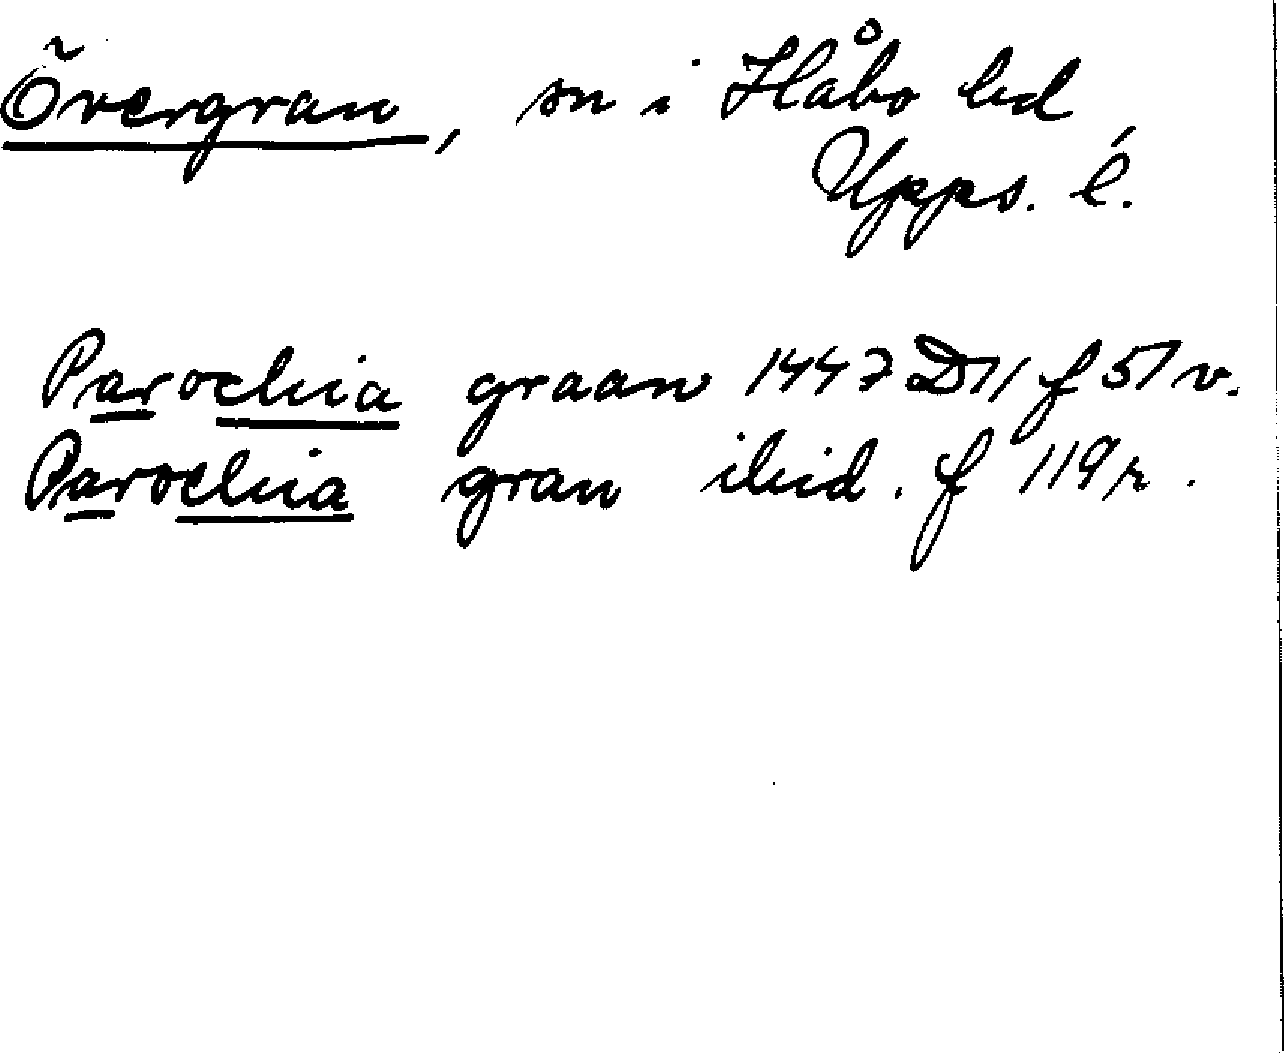 Övergran, sn i Håbo hd,
Upps. l.
Parochia graan 1447 D11 f 57 v.
Parochia gran ibid. f 119 r.